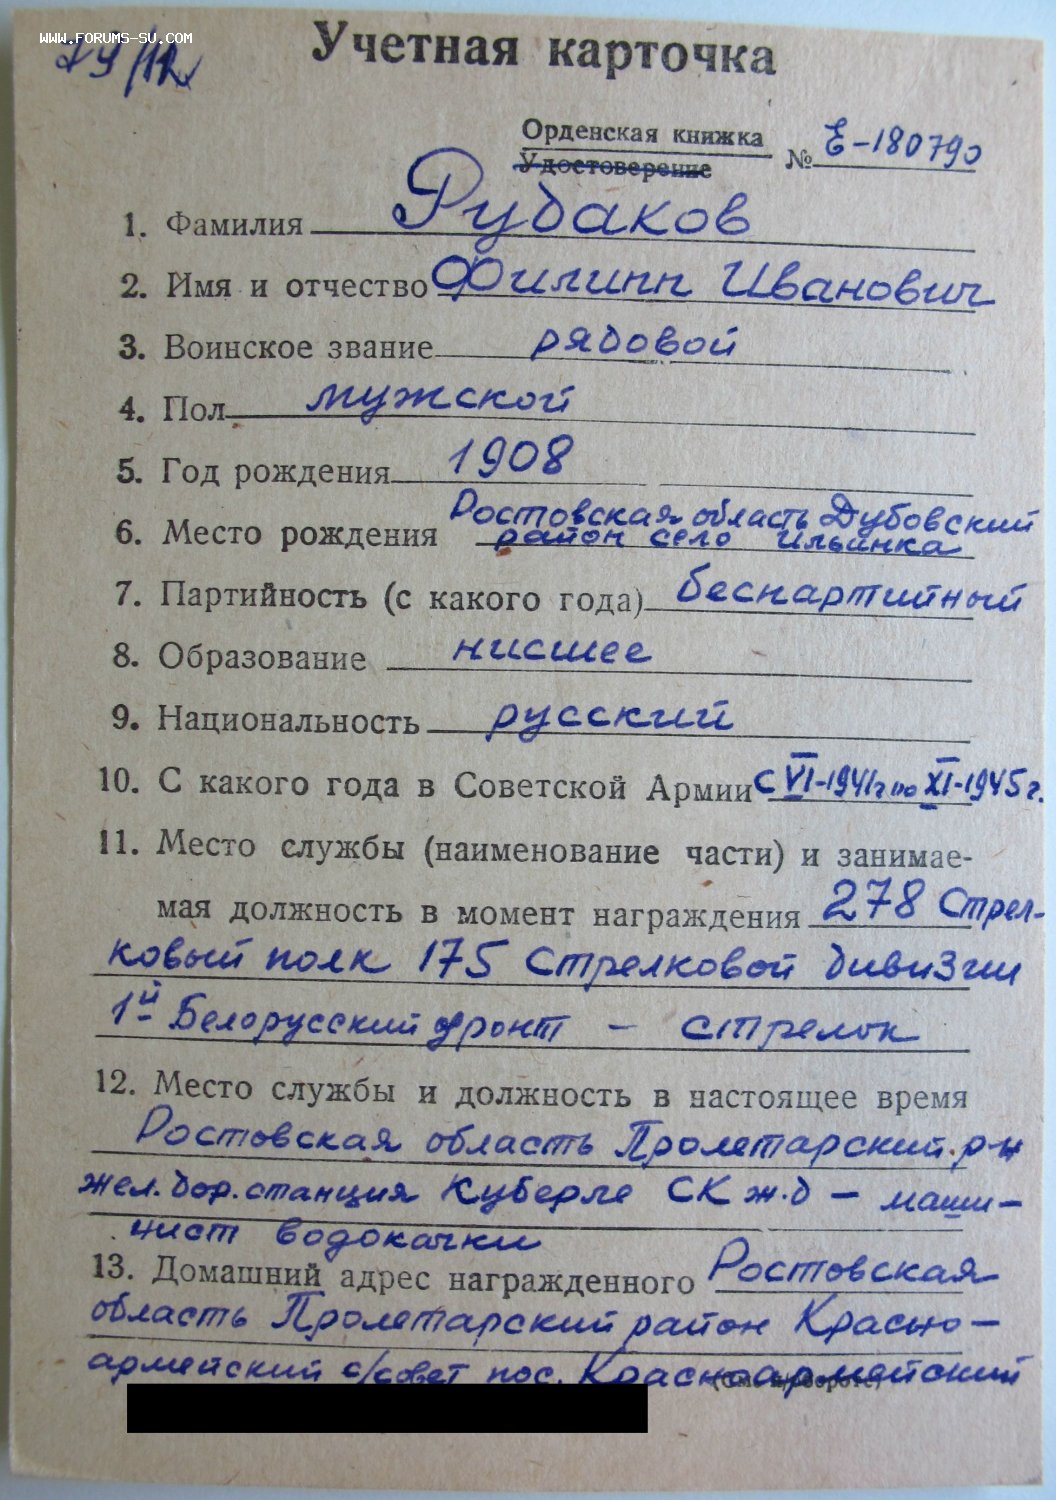 www.forums-su.com
Учетная карточка
Орденская книжка
Удостоверение
№ Е-180790
1. Фамилия Рубаков
2. Имя и отчество Филипп Иванович
3. Воинское звание рядовой
4. Пол мужской
5. Год рождения 1908
Ростовская область Дубовский
6. Место рождения район село Ильинка
7. Партийность (с какого года) беспартийный
8. Образование нисшее
9. Национальность русский
10. С какого года в Советской Армии с VI-1941г по XI-1945г.
11. Место службы (наименование части) и занимае-
мая должность в момент награждения 278 Стрел-
ковый полк 175 Стрелковой дивизии
1й Белорусский фронт – стрелок
12. Место службы и должность в настоящее время
Ростовская область Пролетарский р-н
жел. дор. станция Куберле СК ж.д – маши-
нист водокачки
13. Домашний адрес награжденного Ростовская
область Пролетарский район Красно-
армейский с/совет пос. Красноармейский